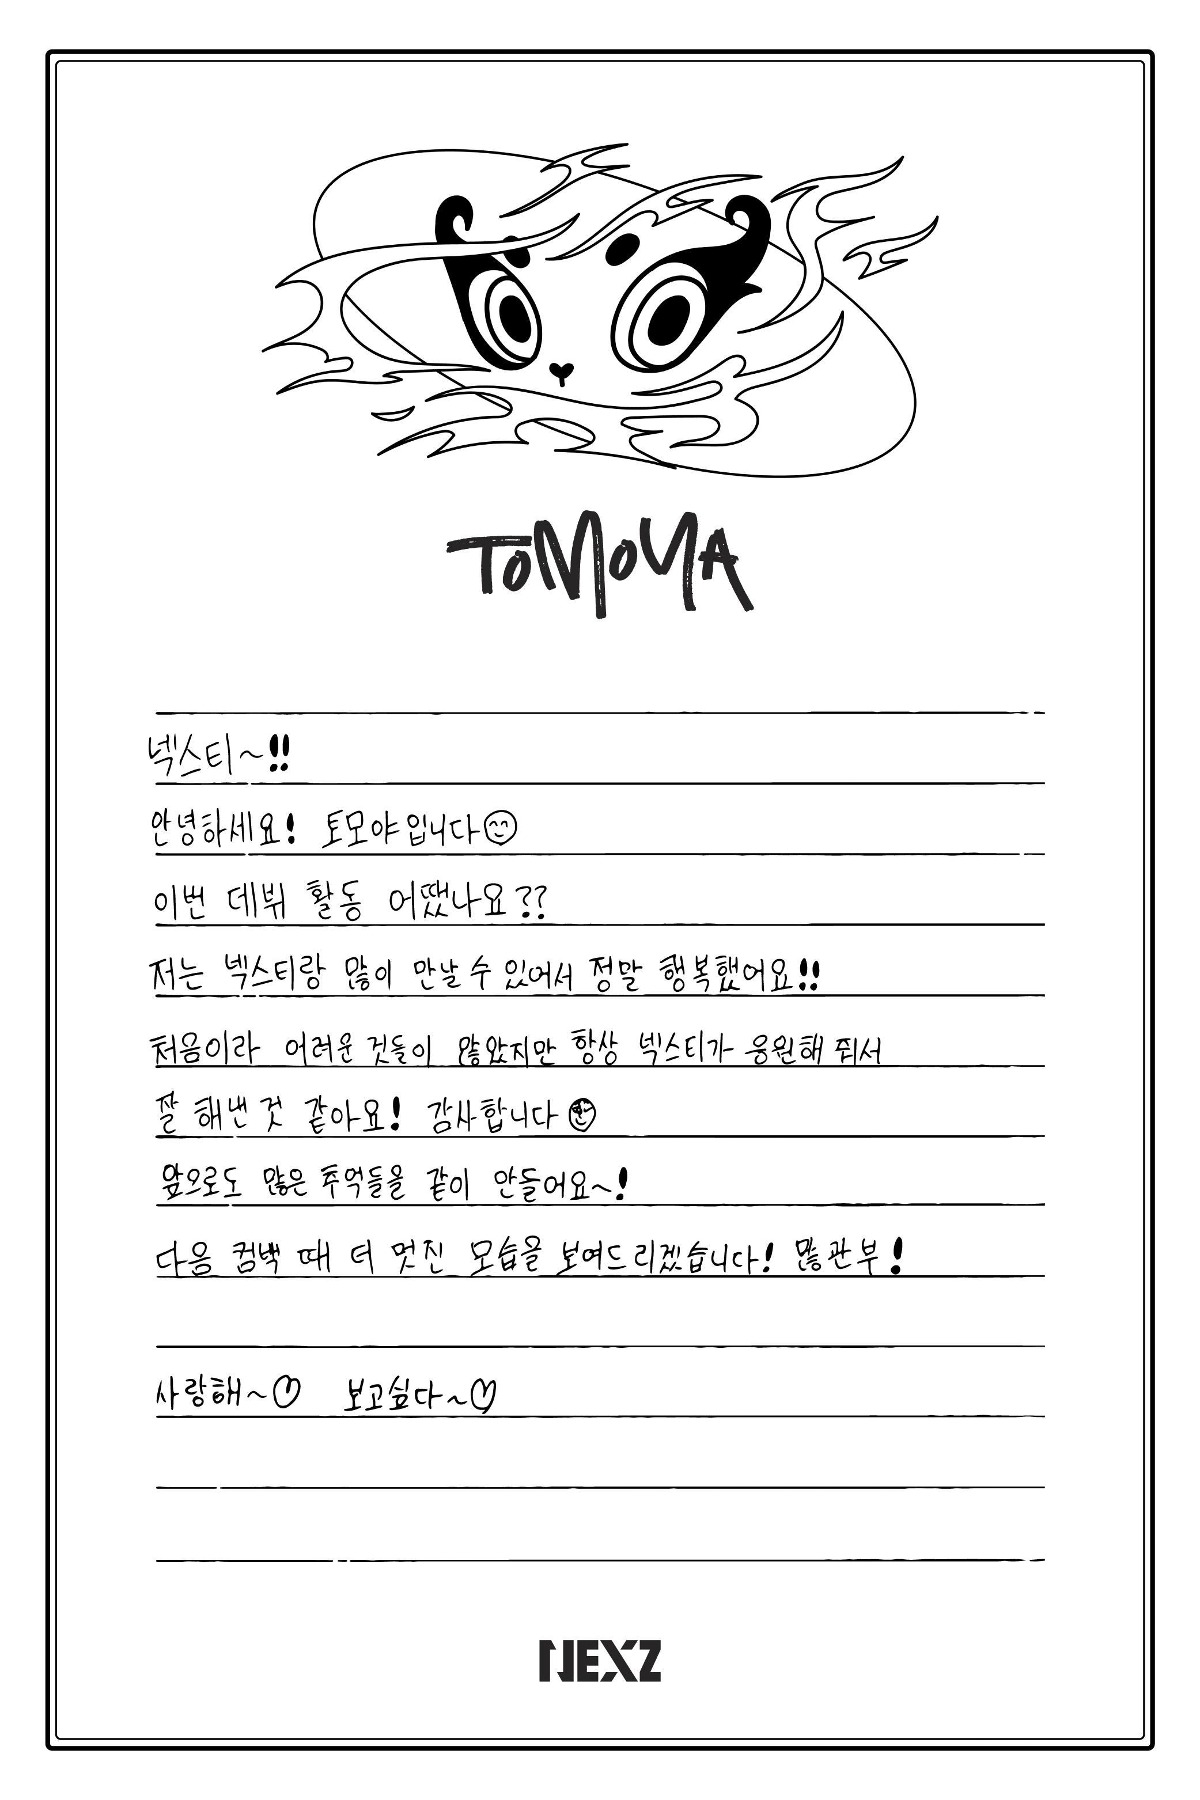 TOMOYA
넥스티~!!
안녕하세요! 토모야입니다
이번 데뷔 활동 어땠나요??
저는 넥스티랑 많이 만날 수 있어서 정말 행복했어요!!
처음이라 어려운 것들이 많았지만 항상 넥스티가 응원해 줘서
잘 해낸 것 같아요! 감사합니다
앞으로도 많은 추억들을 같이 만들어요~!
다음 컴백 때 더 멋진 모습을 보여드리겠습니다! 많관부!
사랑해~♡ 보고싶다~♡
NEXZ